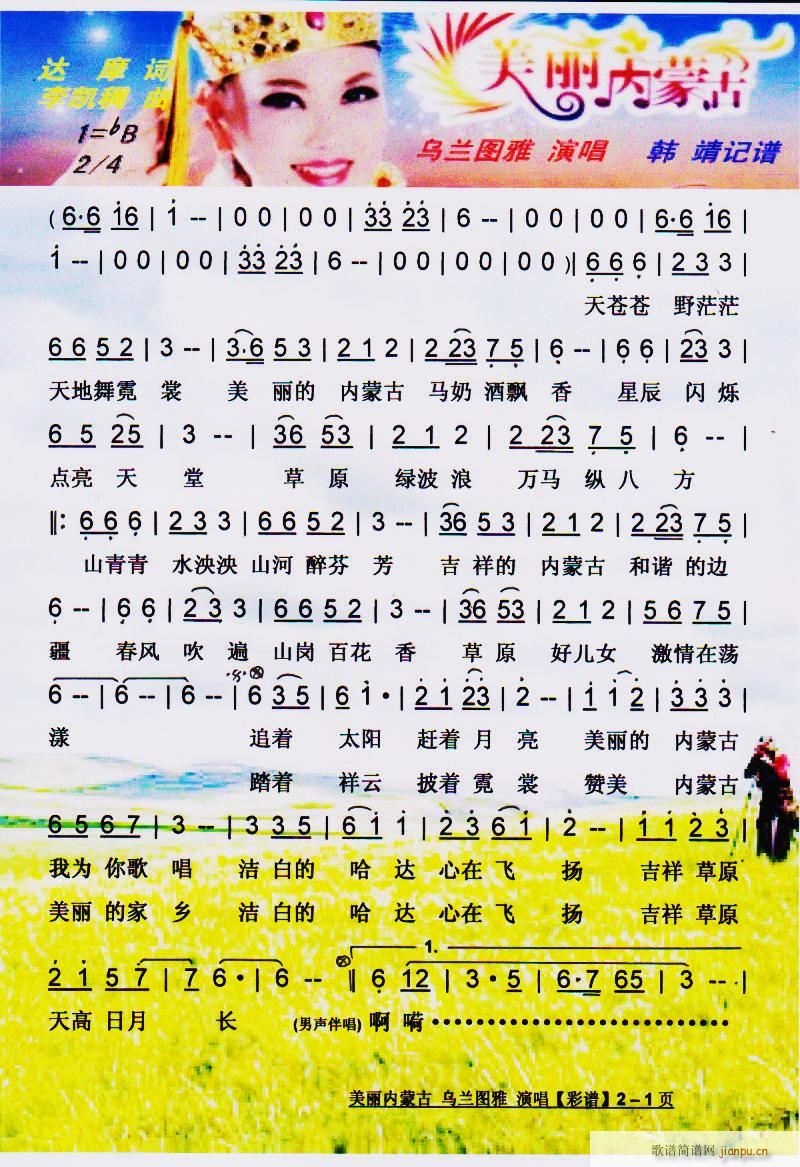 达 摩 词
李凯稠 曲
1=♭B
2/4
美丽内蒙古
乌兰图雅 演唱 韩 靖记谱
( 6·6 i6 | i -- | 0 0 | 0 0 | 33 23 | 6 -- | 0 0 | 0 0 | 6·6 i6 |
i -- | 0 0 | 0 0 | 33 23 | 6 -- | 0 0 | 0 0 | 0 0 )| 6 6 6 | 2 3 3 |
天苍苍 野茫茫
6 6 5 2 | 3 -- | 3·6 5 3 | 2 1 2 | 2 23 7 5 | 6 -- | 6 6 | 23 3 |
天地舞霓 裳 美 丽的 内蒙古 马奶 酒飘 香 星辰 闪烁
6 5 25 | 3 -- | 36 53 | 2 1 2 | 2 23 7 5 | 6 -- |
点亮 天 堂 草 原 绿波浪 万马 纵八方
‖: 6 6 6 | 2 3 3 | 6 6 5 2 | 3 -- | 36 5 3 | 2 1 2 | 2 23 7 5 |
山青青 水泱泱 山河 醉芬 芳 吉 祥的 内蒙古 和谐 的边
6 -- | 6 6 | 2 3 3 | 6 6 5 2 | 3 -- | 36 53 | 2 1 2 | 5 6 7 5 |
疆 春风 吹 遍 山岗 百花 香 草 原 好儿女 激情在荡
6 -- | 6 -- | 6 -- | 6 3 5 | 6 i · | 2 i 23 | 2 -- | i i 2 | 3 3 3 |
漾 追着 太阳 赶着 月 亮 美丽的 内蒙古
踏着 祥云 披着 霓 裳 赞美 内蒙古
6 5 6 7 | 3 -- | 3 3 5 | 6 i i | 2 3 6 i | 2 -- | i i 2 3 |
我为 你歌 唱 洁 白的 哈 达 心在 飞 扬 吉祥 草原
美丽 的家 乡 洁 白的 哈 达 心在 飞 扬 吉祥 草原
1.
2 i 5 7 | 7 6 · | 6 -- ‖ 6 12 | 3 · 5 | 6·7 65 | 3 -- |
天高 日月 长 (男声伴唱) 啊 嗬
美丽内蒙古 乌兰图雅 演唱【彩谱】2－1页
歌谱简谱网
jianpu.cn